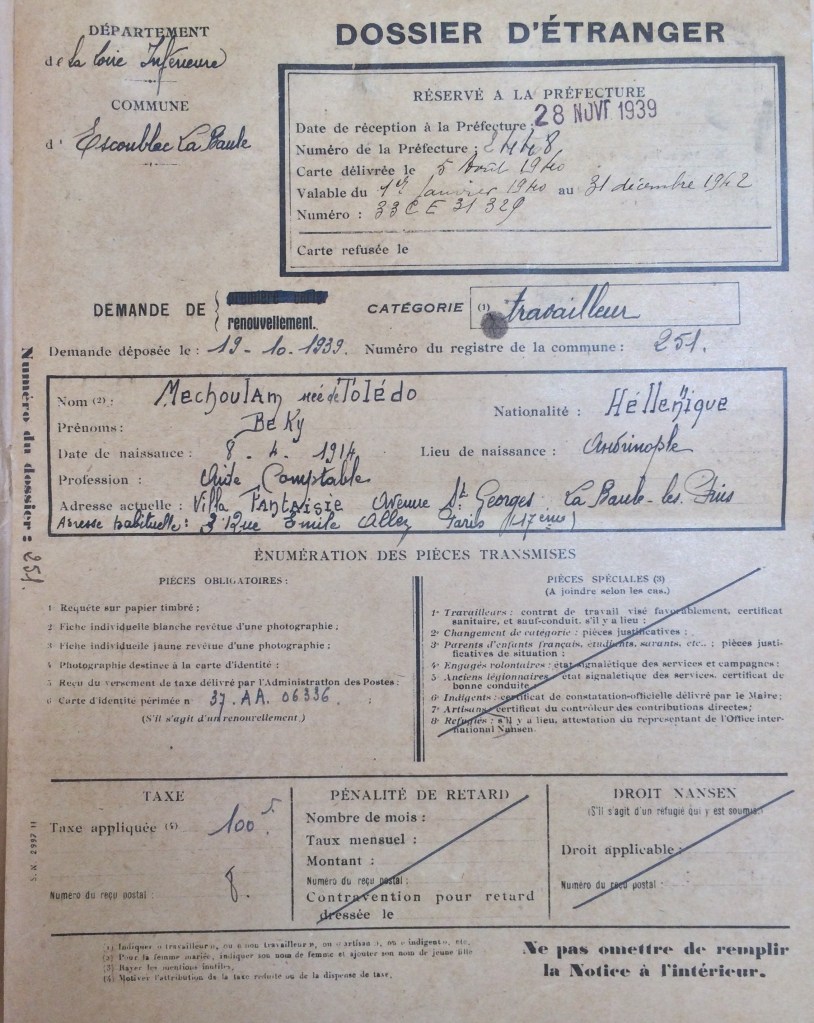 DÉPARTEMENT
de la Loire Inférieure
COMMUNE
d'Escoublac La Baule
DOSSIER D'ÉTRANGER
RÉSERVÉ A LA PRÉFECTURE
Date de réception à la Préfecture : 28 NOV 1939
Numéro de la Préfecture : 8448
Carte délivrée le 5 Août 1940
Valable du 1er Janvier 1940 au 31 décembre 1942
Numéro : 33 CE 31 329
Carte refusée le
DEMANDE DE renouvellement. CATÉGORIE (1) travailleur
Demande déposée le : 19-10-1939. Numéro du registre de la commune : 251.
Numéro du dossier : 251
Nom (2) : Mechoulam née de Tolédo
Nationalité : Héllenique
Prénoms : Beky
Date de naissance : 8-4-1914 Lieu de naissance : Andrinople
Profession : Aide Comptable
Adresse actuelle : Villa Fantaisie Avenue St Georges La Baule-les-Pins
Adresse habituelle : 3 Rue Emile Allez Paris (17ème)
ÉNUMÉRATION DES PIÈCES TRANSMISES
PIÈCES OBLIGATOIRES :
1 Requête sur papier timbré ;
2 Fiche individuelle blanche revêtue d'une photographie ;
3 Fiche individuelle jaune revêtue d'une photographie ;
4 Photographie destinée à la carte d'identité ;
5 Reçu du versement de taxe délivré par l'Administration des Postes ;
6 Carte d'identité périmée n° 37.AA.06336. ;
(S'il s'agit d'un renouvellement.)
PIÈCES SPÉCIALES (3)
(A joindre selon les cas.)
1° Travailleurs : contrat de travail visé favorablement, certificat
sanitaire, et sauf-conduit, s'il y a lieu ;
2° Changement de catégorie : pièces justificatives ;
3° Parents d'enfants français, étudiants, savants, etc.. ; pièces justi-
ficatives de situation ;
4° Engagés volontaires : état signalétique des services et campagnes ;
5° Anciens légionnaires : état signalétique des services, certificat de
bonne conduite ;
6° Indigents : certificat de constatation officielle délivré par le Maire ;
7° Artisans : certificat du contrôleur des contributions directes ;
8° Réfugiés : s'il y a lieu, attestation du représentant de l'Office inter-
national Nansen.
TAXE
Taxe appliquée (5) 100 F.
Numéro du reçu postal : 8.
PÉNALITÉ DE RETARD
Nombre de mois :
Taux mensuel :
Montant :
Numéro du reçu postal :
Contravention pour retard
dressée le
DROIT NANSEN
(S'il s'agit d'un réfugié qui y est soumis.)
Droit applicable :
Numéro du reçu postal :
S. N. 2997 II
(1) Indiquer « travailleur », ou « non travailleur », ou « artisan », ou « indigent », etc.
(2) Pour la femme mariée, indiquer son nom de femme et ajouter son nom de jeune fille
(3) Rayer les mentions inutiles,
(4) Motiver l'attribution de la taxe réduite ou de la dispense de taxe.
Ne pas omettre de remplir
la Notice à l'intérieur.